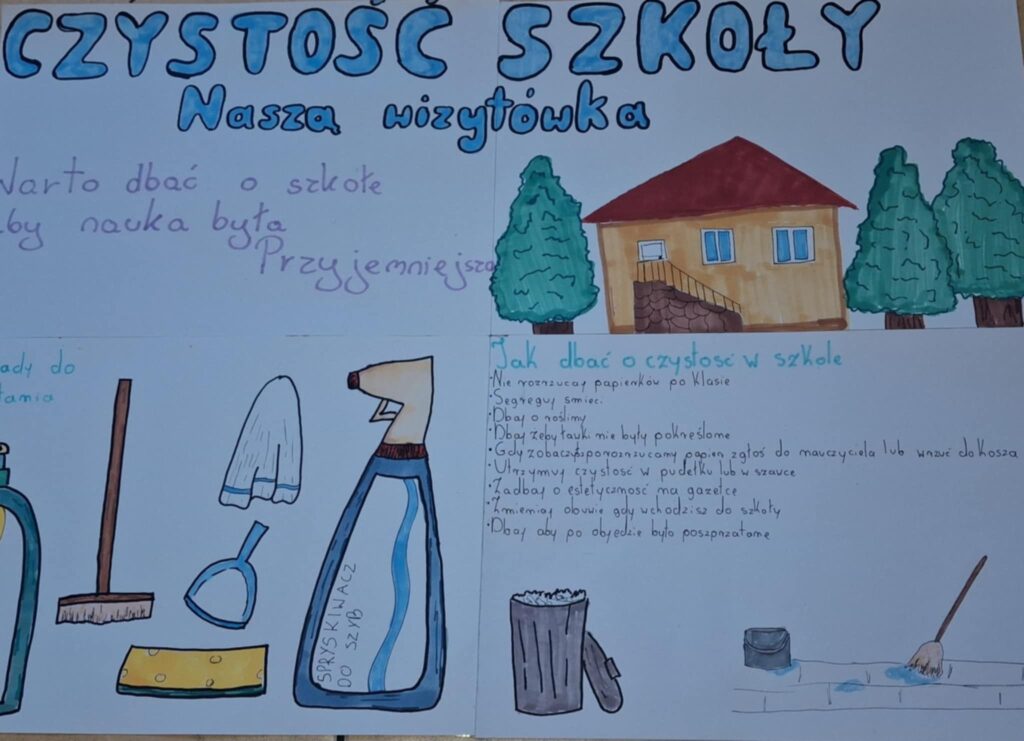 CZYSTOŚĆ SZKOŁY
Nasza wizytówka
Warto dbać o szkołe
aby nauka była
Przyjemniejsza
ady do
tania
Jak dbać o czystość w szkole
•Nie rozrzucaj papierków po klasie
•Segreguj śmieci
•Dbaj o rośliny
•Dbaj żeby ławki nie były pokreślone
•Gdy zobaczysz porozrzucany papier zgłoś do nauczyciela lub wrzuć do kosza
•Utrzymuj czystość w pudełku lub w szafce
•Zadbaj o estetyczność na gazetce
•Zmieniaj obuwie gdy wchodzisz do szkoły
•Dbaj aby po objedzie było posprzątane
SPRYSKIWACZ
DO SZYB